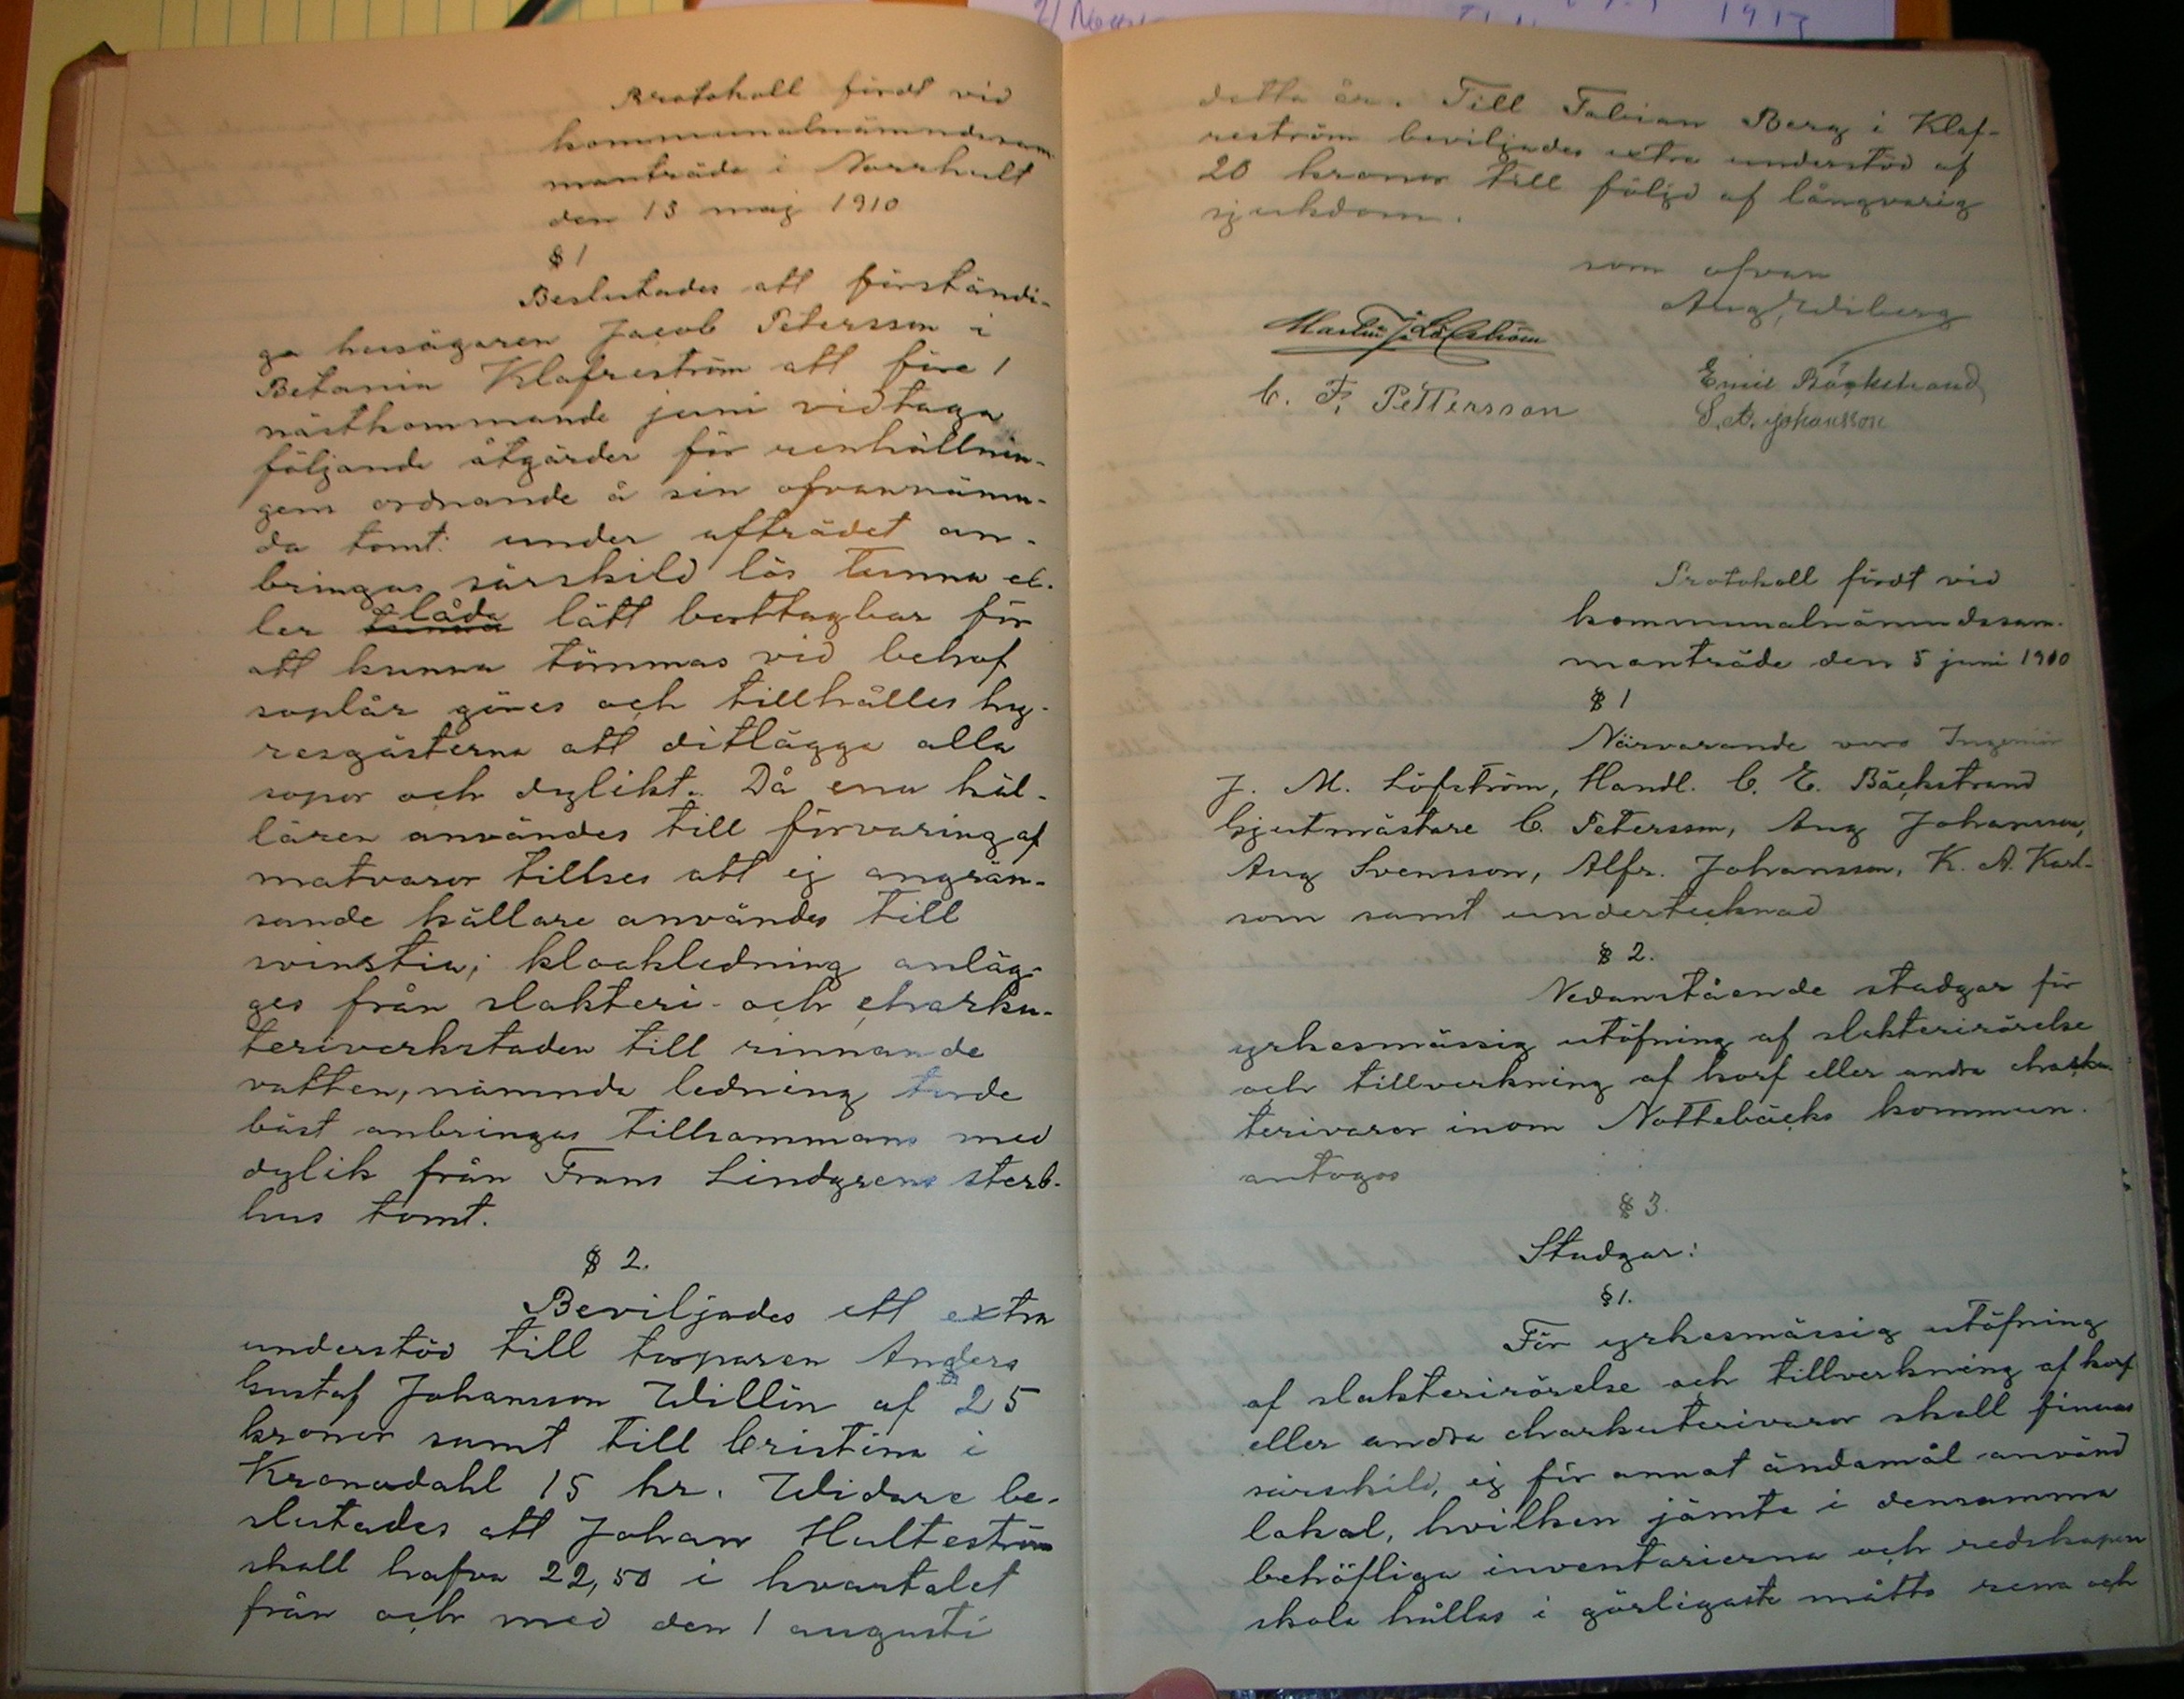 2/
1913
Protokoll fördt vid
kommunalnämndssam-
manträde i Norrhult
den 13 maj 1910
§ 1
Beslutades att förständi-
ga husägaren Jacob Petersson i
Betania Klafreström att före 1
nästkommande juni vidtaga
följande åtgärder för renhållnin-
gens ordnande å sin ofvannämn-
da tomt: under afträdet an-
bringas särskild lös tunna el-
ler tunna låda lätt borttagbar för
att kunna tömmas vid behof
soplår göres och tillhålles hy-
resgästerna att ditlägga alla
sopor och dylikt. Då ena käl-
laren användes till förvaring af
matvaror tillses att ej angrän-
sande källare användes till
svinstia; kloakledning anläg-
ges från slakteri- och charku-
teriverkstaden till rinnande
vatten, nämnda ledning torde
bäst anbringas tillsammans med
dylik från Frans Lindgrens sterb-
hus tomt.
§ 2.
Beviljades ett extra
understöd till torparen Anders
Gustaf Johansson Willin af 25
kronor samt till Cristina i
Kronodahl 15 kr. Widare be-
slutades att Johan Hulteström
skall hafva 22,50 i kvartalet
från och med den 1 augusti
detta år. Till Fabian Berg i Klaf-
reström beviljades extra understöd af
20 kronor till följd af långvarig
sjukdom.
som ofvan
Aug Wiberg
Martin J. Löfström
C. F. Pettersson
Emil Bäckstrand
S. A. Johansson
Protokoll fördt vid
kommunalnämndssam-
manträde den 5 juni 1910
§ 1
Närvarande voro Ingeniör
J. M. Löfström, Handl. C. E. Bäckstrand
Gjutmästare C. Petersson, Aug Johansson,
Aug Svensson, Alfr. Johansson, K. A. Karl-
son samt undertecknad
§ 2.
Nedanstående stadgar för
yrkesmässig utöfning af slakterirörelse
och tillverkning af korf eller andra charku-
terivaror inom Nottebäcks kommun.
antogos
§ 3.
Stadgar:
§ 1.
För yrkesmässig utöfning
af slakterirörelse och tillverkning af korf
eller andra charkuterivaror skall finnas
särskild, ej för annat ändamål använd
lokal, hvilken jämte i densamma
behöfliga inventarierna och redskapen
skola hållas i görligaste måtto rena och